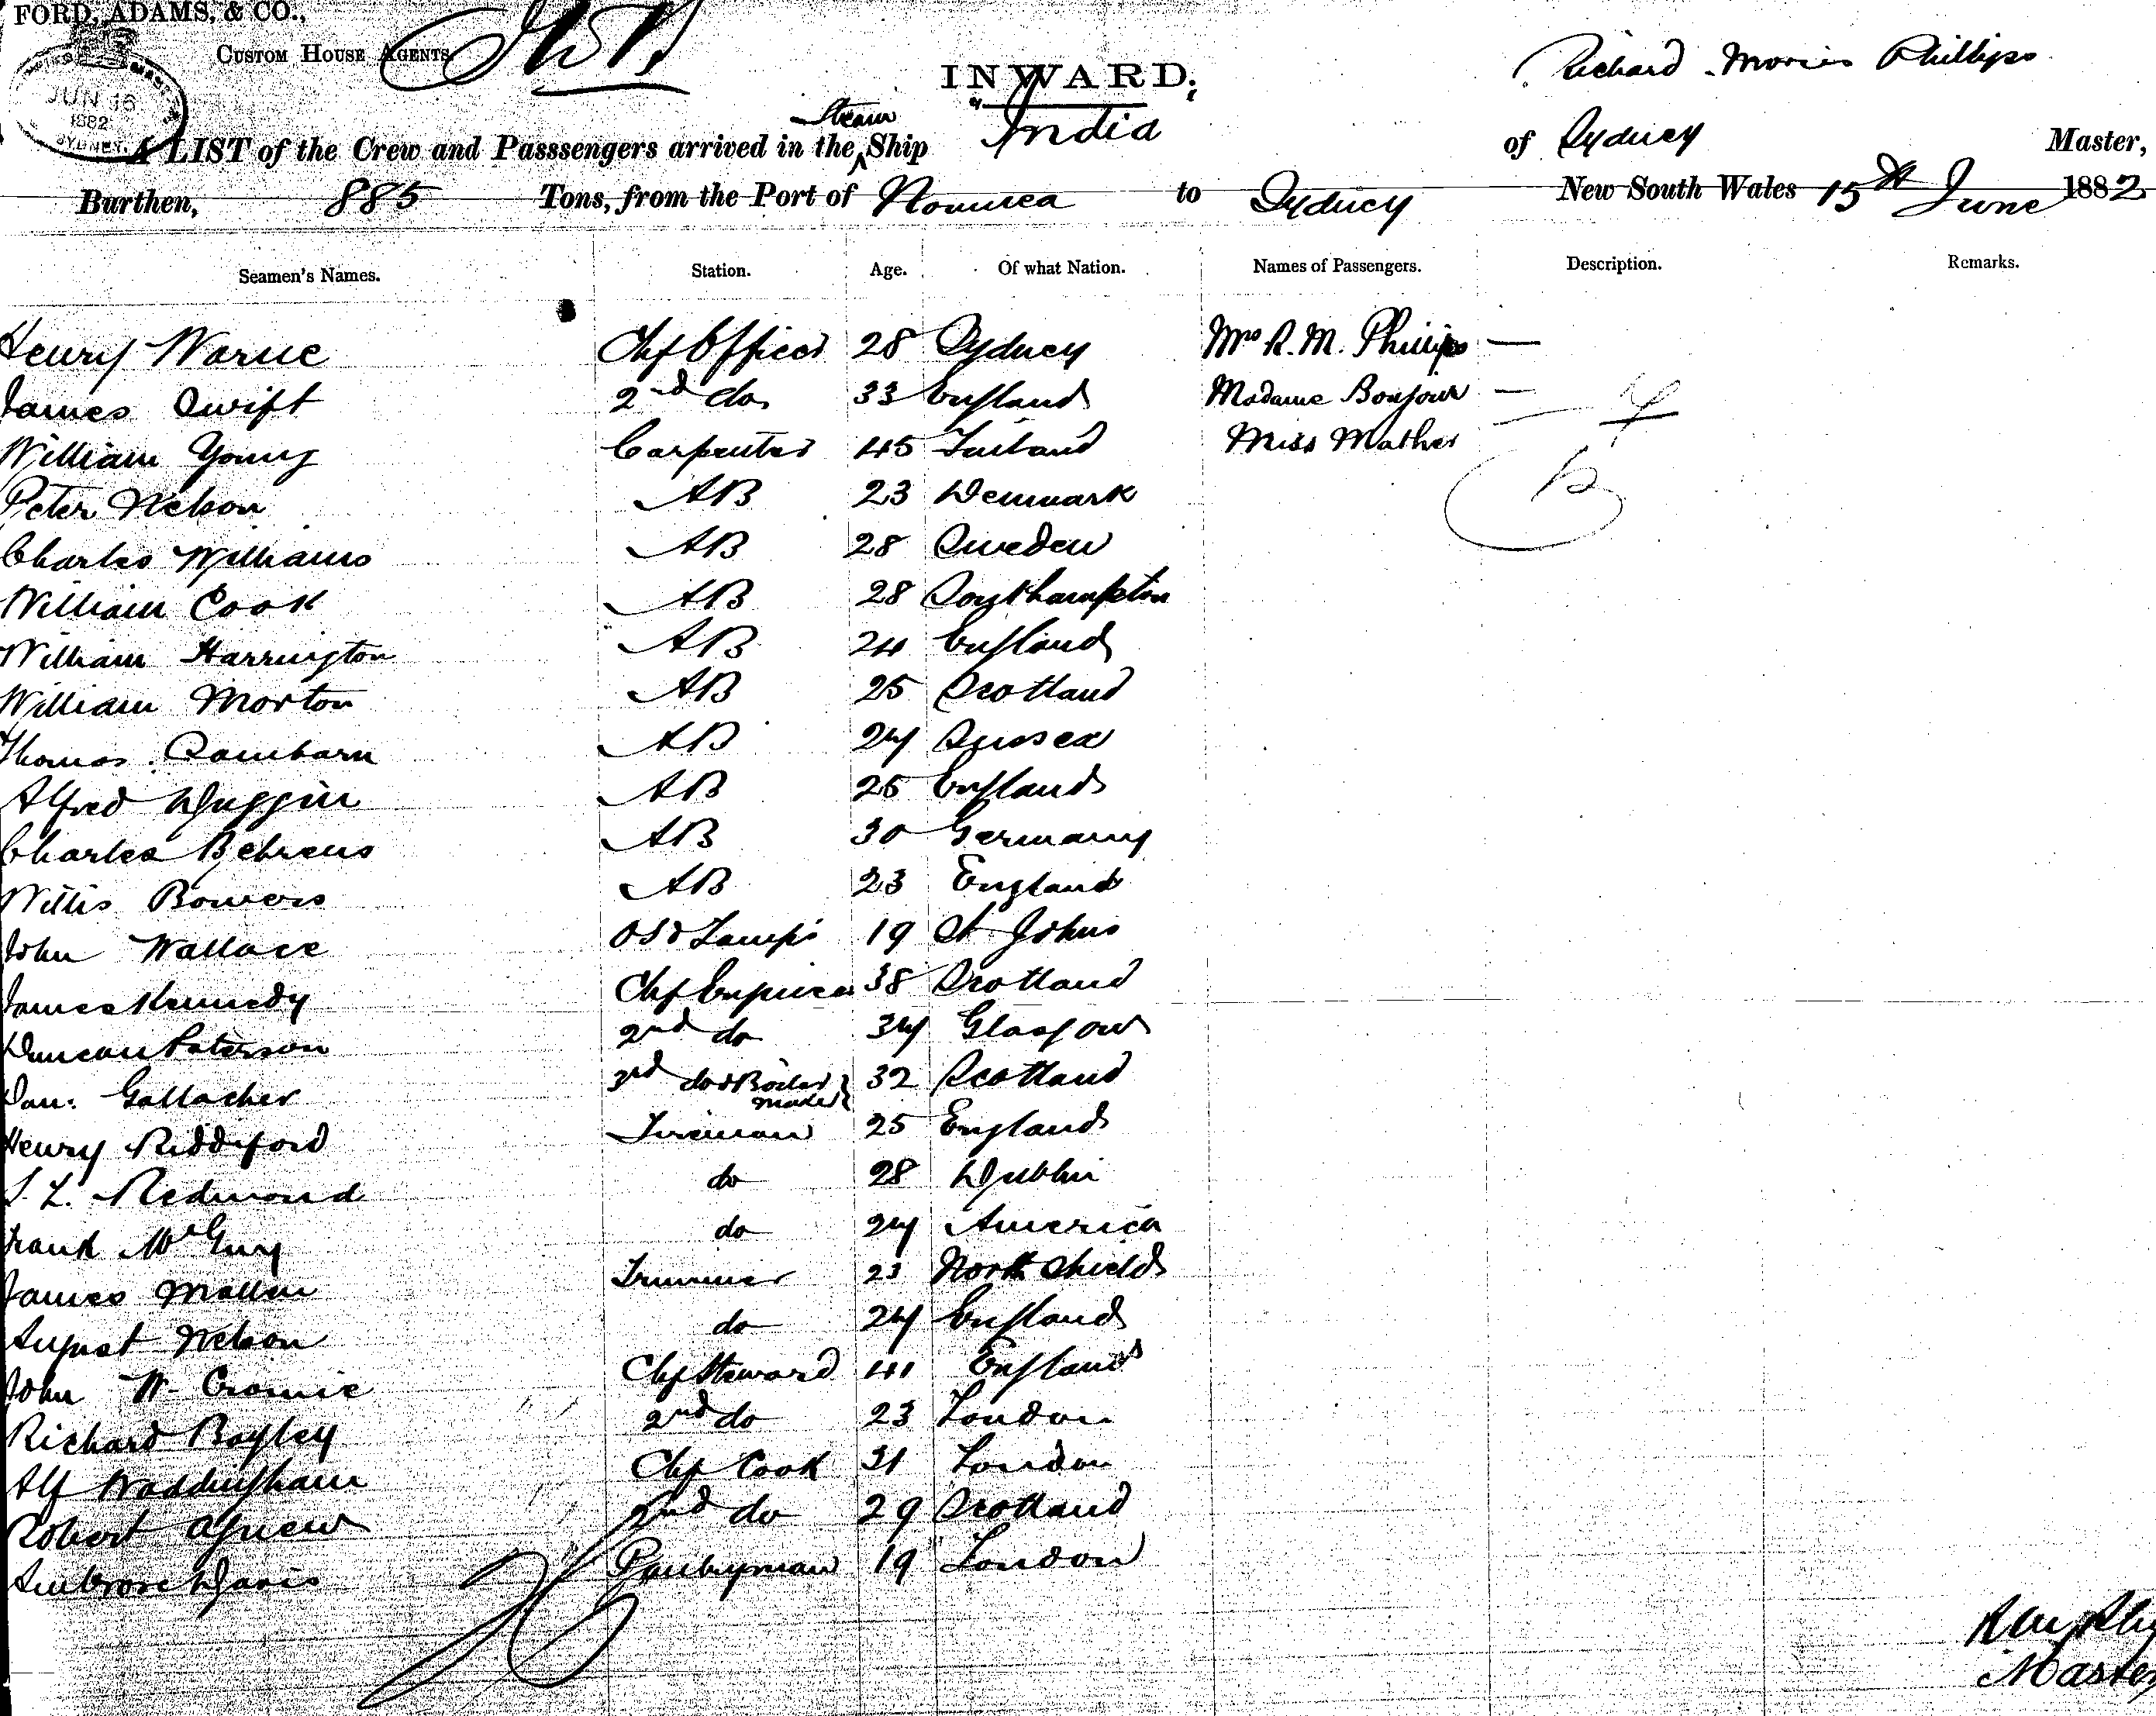 FORD, ADAMS, & CO.,
CUSTOM HOUSE AGENTS
JUN 16
1882
SYDNEY.
INWARD.
Richard Morris Phillips
A LIST of the Crew and Passsengers arrived in the Steam Ship "India of Sydney Master,
Burthen, 885 Tons, from the Port of Noumea to Sydney New South Wales 15th June 1882
Seamen's Names. Station. Age. Of what Nation. Names of Passengers. Description. Remarks.
Henry Warne Chf Officer 28 Sydney Mrs R. M. Phillips —
James Swift 2nd do 33 England Madame Bonjour —
William Young Carpenter 45 Finland Miss Mather
Peter Nelson AB 23 Denmark
Charles Williams AB 28 Sweden
William Cook AB 28 Southampton
William Harrington AB 24 England
William Morton AB 25 Scotland
Thomas AB 24 Sussex
Alfred Duggin AB 25 England
Charles Behrens AB 30 Germany
Willis Bowers AB 23 England
John Wallace OS & Lamps 19 St Johns
James Kennedy Chf Engineer 38 Scotland
Duncan Paterson 2nd do 34 Glasgow
Dan: Gallacher 3rd do & Boiler maker 32 Scotland
Henry Riddiford Fireman 25 England
Redmond do 28 Dublin
Frank do 24 America
James Mallen Trimmer 23 North Shields
August Nelson do 24 England
John W. Cromie Chf Steward 41 England
Richard Bayley 2nd do 23 London
Alf Waddingham Chf Cook 31 London
Robert Agnew 2nd do 29 Scotland
Ambrose Davis Pantryman 19 London
Master